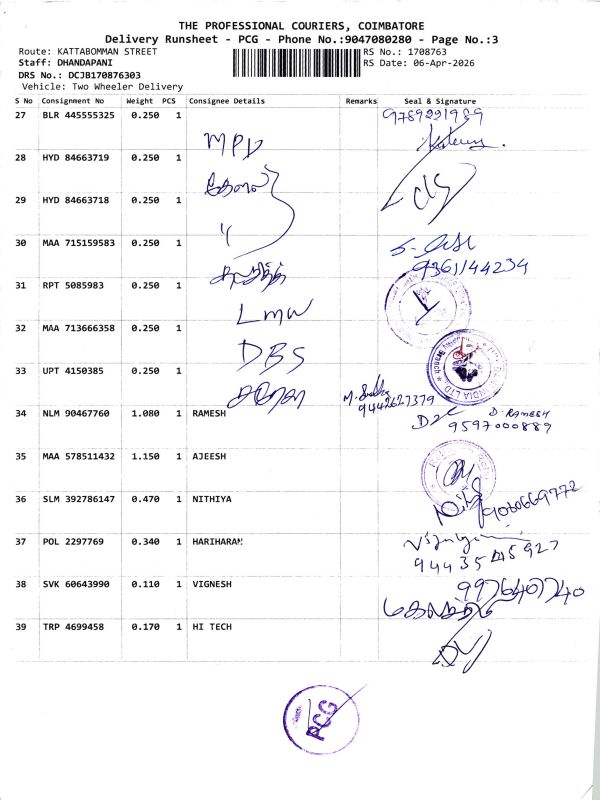 THE PROFESSIONAL COURIERS, COIMBATORE
Delivery Runsheet - PCG - Phone No.:9047080280 - Page No.:3
Route: KATTABOMMAN STREET RS No.: 1708763
Staff: DHANDAPANI RS Date: 06-Apr-2026
DRS No.: DCJB170876303
Vehicle: Two Wheeler Delivery
S No Consignment No Weight PCS Consignee Details Remarks Seal & Signature
27 BLR 445555325 0.250 1 MPD 9789221989
28 HYD 84663719 0.250 1
29 HYD 84663718 0.250 1
30 MAA 715159583 0.250 1 9361144234
31 RPT 5085983 0.250 1 LMW
32 MAA 713666358 0.250 1 DBS
33 UPT 4150385 0.250 1 9442627379
34 NLM 90467760 1.080 1 RAMESH D. RAMESH
9597000889
35 MAA 578511432 1.150 1 AJEESH
36 SLM 392786147 0.470 1 NITHIYA 9080669772
37 POL 2297769 0.340 1 HARIHARAN
38 SVK 60643990 0.110 1 VIGNESH
39 TRP 4699458 0.170 1 HI TECH
PCG